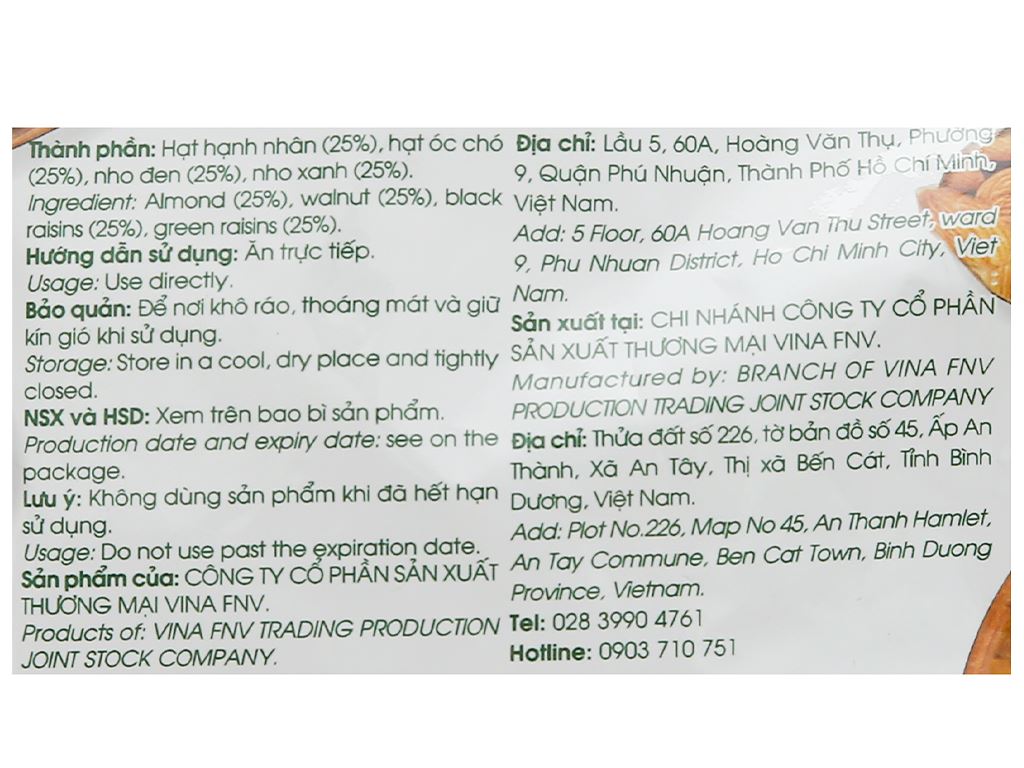 Thành phần: Hạt hạnh nhân (25%), hạt óc chó
(25%), nho đen (25%), nho xanh (25%).
Ingredient: Almond (25%), walnut (25%), black
raisins (25%), green raisins (25%).
Hướng dẫn sử dụng: Ăn trực tiếp.
Usage: Use directly.
Bảo quản: Để nơi khô ráo, thoáng mát và giữ
kín gió khi sử dụng.
Storage: Store in a cool, dry place and tightly
closed.
NSX và HSD: Xem trên bao bì sản phẩm.
Production date and expiry date: see on the
package.
Lưu ý: Không dùng sản phẩm khi đã hết hạn
sử dụng.
Usage: Do not use past the expiration date.
Sản phẩm của: CÔNG TY CỔ PHẦN SẢN XUẤT
THƯƠNG MẠI VINA FNV.
Products of: VINA FNV TRADING PRODUCTION
JOINT STOCK COMPANY.
Địa chỉ: Lầu 5, 60A, Hoàng Văn Thụ, Phường
9, Quận Phú Nhuận, Thành Phố Hồ Chí Minh,
Việt Nam.
Add: 5 Floor, 60A Hoang Van Thu Street, ward
9, Phu Nhuan District, Ho Chi Minh City, Viet
Nam.
Sản xuất tại: CHI NHÁNH CÔNG TY CỔ PHẦN
SẢN XUẤT THƯƠNG MẠI VINA FNV.
Manufactured by: BRANCH OF VINA FNV
PRODUCTION TRADING JOINT STOCK COMPANY
Địa chỉ: Thửa đất số 226, tờ bản đồ số 45, Ấp An
Thành, Xã An Tây, Thị xã Bến Cát, Tỉnh Bình
Dương, Việt Nam.
Add: Plot No.226, Map No 45, An Thanh Hamlet,
An Tay Commune, Ben Cat Town, Binh Duong
Province, Vietnam.
Tel: 028 3990 4761
Hotline: 0903 710 751